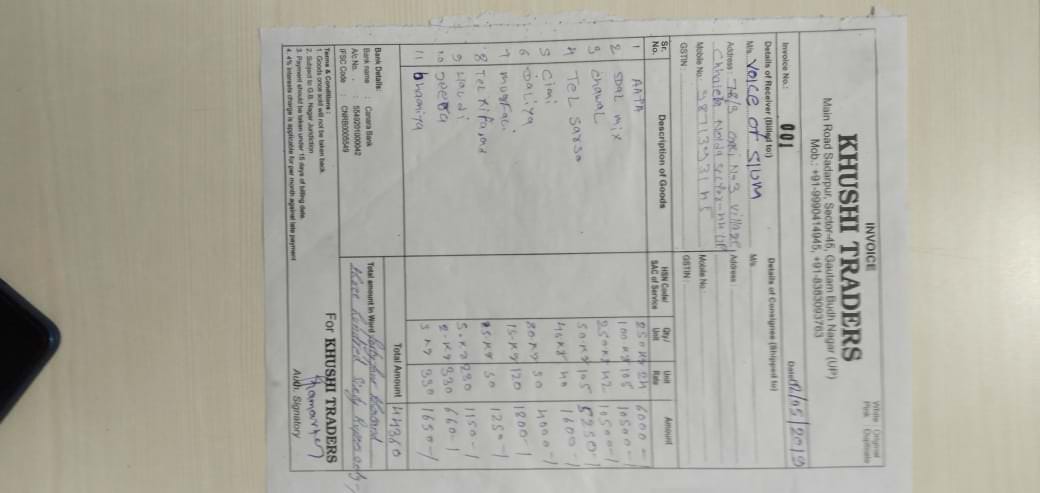 INVOICE
White : Original
Pink : Duplicate
KHUSHI TRADERS
Main Road Sadarpur, Sector-45, Gautam Budh Nagar (UP)
Mob.: +91-9990414945, +91-8383093763
Invoice No.: 001
Dated 17/05/2019
Details of Receiver (Billed to)
Details of Consignee (Shipped to)
M/s. Voice of Slum
M/s.
Address : 78/3 Village
Address :
Chhalera Noida Sector-44 UP
Mobile No.:
Mobile No.:
GSTIN :
GSTIN :
Sr. No. Description of Goods HSN Code/ SAC of Service Qty/ Unit Unit Rate Amount
1 AATA 250 Kg 24 6000
2 Dal mix 100 Kg 105 10500
3 Chawal 250 Kg 42 10500
4 Tel Sarso 50 Kg 105 5250
5 Cini 40 1600
6 Daliya 80 Kg 50 4000
7 mugfali 15 Kg 120 1800
8 Tel 25 Kg 50 1250
9 Haldi 5 Kg 230 1150
10 Jeera 2 Kg 330 660
11 Dhaniya 1650
Total Amount 44360
Bank Details:
Bank name : Canara Bank
A/c No. : 5549201000042
IFSC Code : CNRB0005549
Total amount in Word
three hundred sixty Rupees only
Terms & Conditions :
1. Goods once sold will not be taken back.
2. Subject to G.B. Nagar Juridiction
3. Payment should be taken under 15 days of billing date.
4. 4% interests charge is applicable for per month against late payment
For KHUSHI TRADERS
Auth. Signatory